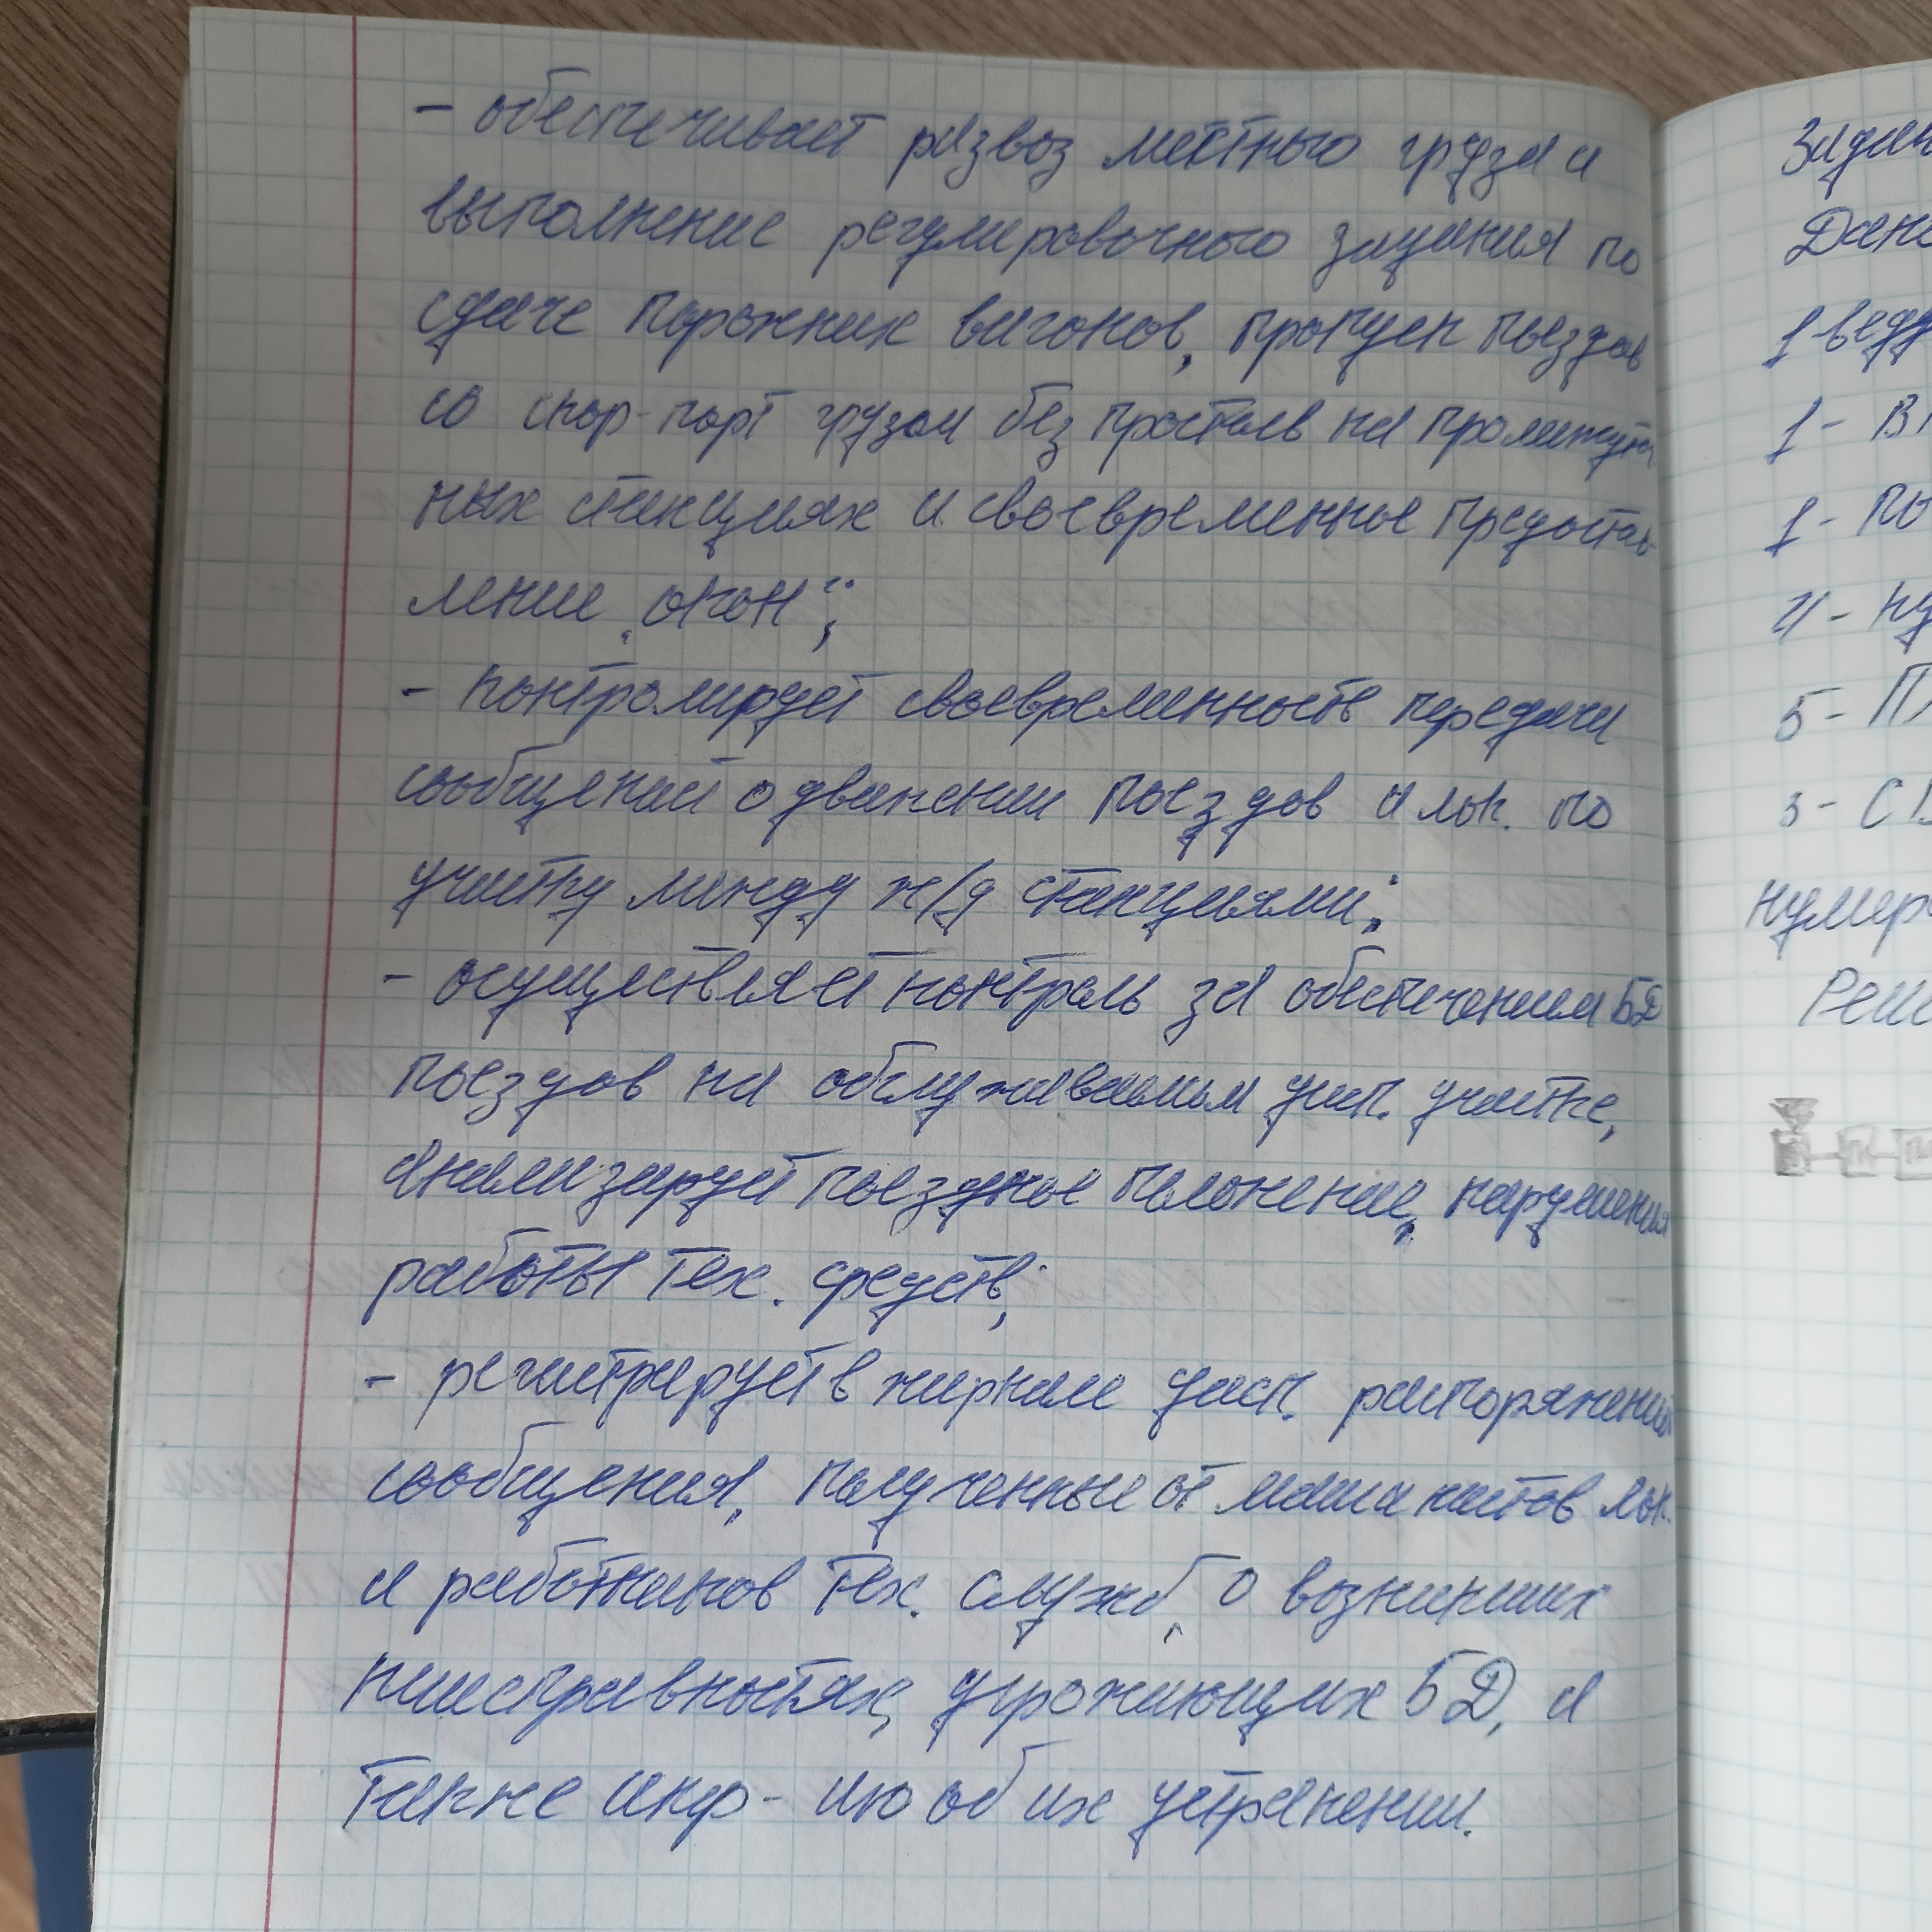 - обеспечивает развоз местного груза и
выполнение регулировочного задания по
сдаче порожних вагонов, пропуск поездов
со скор-порт грузом без простоев на промежуточ
ных станциях и своевременное предостав-
ление „окон“;
- контролирует своевременность передачи
сообщений о движении поездов и лок. по
участку между ж/д станциями;
- осуществляет контроль за обеспечением БД
поездов на обслуживаемом дисп. участке,
анализирует поездное положение, нарушения
работы тех. средств;
- регистрирует в журнале дисп. распоряжений
сообщения, полученные от машинистов лок.
и работников тех. служб, о возникших
неисправностях, угрожающих БД, а
также инф-ию об их устранении.
Дан
1-
1-
1- по
4-
5-
3- С
нумер
Реш